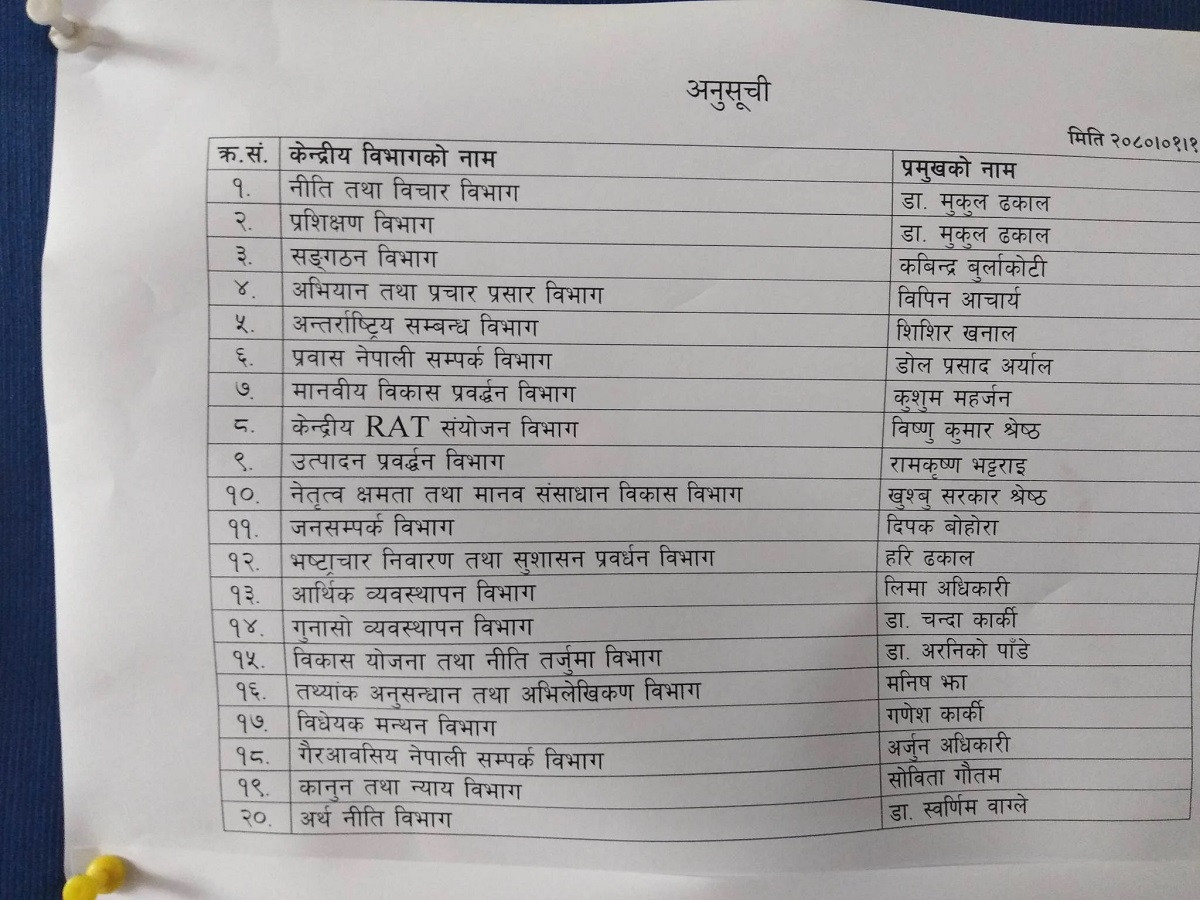 अनुसूची
मिति २०८०।०१।१
क्र.सं. केन्द्रीय विभागको नाम प्रमुखको नाम
१. नीति तथा विचार विभाग डा. मुकुल ढकाल
२. प्रशिक्षण विभाग डा. मुकुल ढकाल
३. सङ्गठन विभाग कबिन्द्र बुर्लाकोटी
४. अभियान तथा प्रचार प्रसार विभाग विपिन आचार्य
५. अन्तर्राष्ट्रिय सम्बन्ध विभाग शिशिर खनाल
६. प्रवास नेपाली सम्पर्क विभाग डोल प्रसाद अर्याल
७. मानवीय विकास प्रवर्द्धन विभाग कुशुम महर्जन
८. केन्द्रीय RAT संयोजन विभाग विष्णु कुमार श्रेष्ठ
९. उत्पादन प्रवर्द्धन विभाग रामकृष्ण भट्टराइ
१०. नेतृत्व क्षमता तथा मानव संसाधान विकास विभाग खुश्बु सरकार श्रेष्ठ
११. जनसम्पर्क विभाग दिपक बोहोरा
१२. भष्ट्राचार निवारण तथा सुशासन प्रवर्धन विभाग हरि ढकाल
१३. आर्थिक व्यवस्थापन विभाग लिमा अधिकारी
१४. गुनासो व्यवस्थापन विभाग डा. चन्दा कार्की
१५. विकास योजना तथा नीति तर्जुमा विभाग डा. अरनिको पाँडे
१६. तथ्यांक अनुसन्धान तथा अभिलेखिकण विभाग मनिष झा
१७. विधेयक मन्थन विभाग गणेश कार्की
१८. गैरआवसिय नेपाली सम्पर्क विभाग अर्जुन अधिकारी
१९. कानुन तथा न्याय विभाग सोविता गौतम
२०. अर्थ नीति विभाग डा. स्वर्णिम वाग्ले